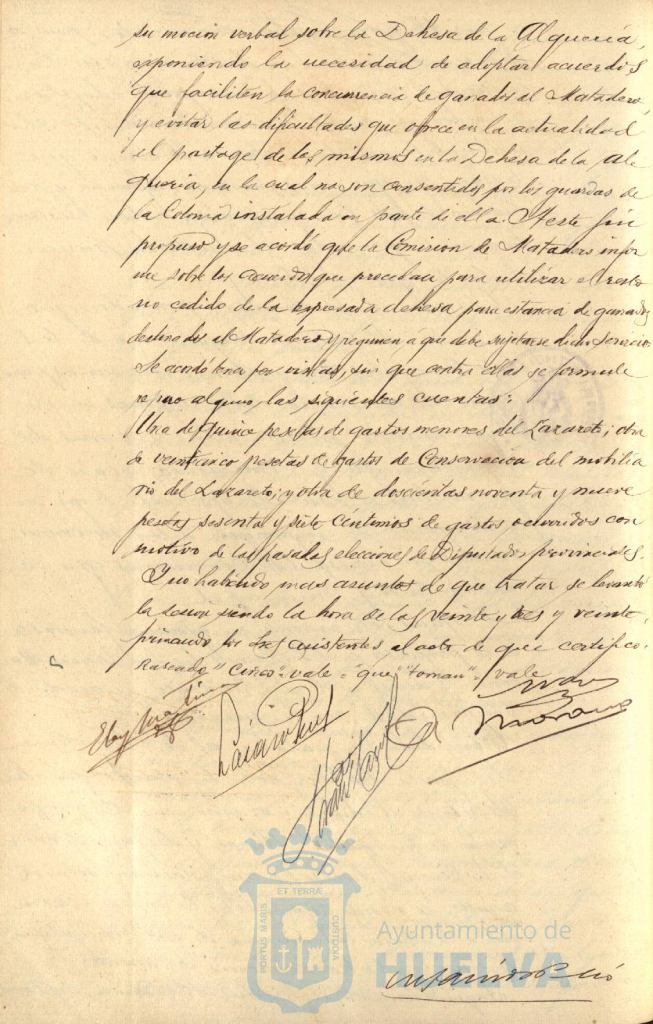 su mocion verbal sobre la Dehesa de la Alqueria,
exponiendo la necesidad de adoptar acuerdos
que faciliten la concurrencia de ganados al Matadero,
y evitar las dificultades que ofrece en la actualidad
el pastage de los mismos en la Dehesa de la Al
queria, en la cual no son consentidos por los guardas de
la Colonia instalada en parte de ella. A este fin
propuso y se acordó que la Comision de Matadero infor
me sobre los acuerdos que procedan para utilizar el resto
no cedido de la expresada dehesa para estancia de ganados
destinados al Matadero y régimen á que debe sujetarse dicho servicio.
Se acordó tener por vistas, sin que contra ellas se formule
reparo alguno, las siguientes cuentas:
Una de quince pesetas de gastos menores del Lazareto; otra
de veinticinco pesetas de gastos de Conservacion del mobilia
rio del Lazareto; y otra de doscientas noventa y nueve
pesetas sesenta y siete céntimos de gastos ocurridos con
motivo de las pasadas elecciones de Diputados provinciales.
Y no habiendo mas asuntos de que tratar se levantó
la sesion siendo la hora de las veinte y tres y veinte
firmando los Sres asistentes al acto de que certifico.
Raspado " " vale = "que" "toman" vale
Moreno
PORTUS MARIS
ET TERRAE
CUSTODIA
Ayuntamiento de
HUELVA